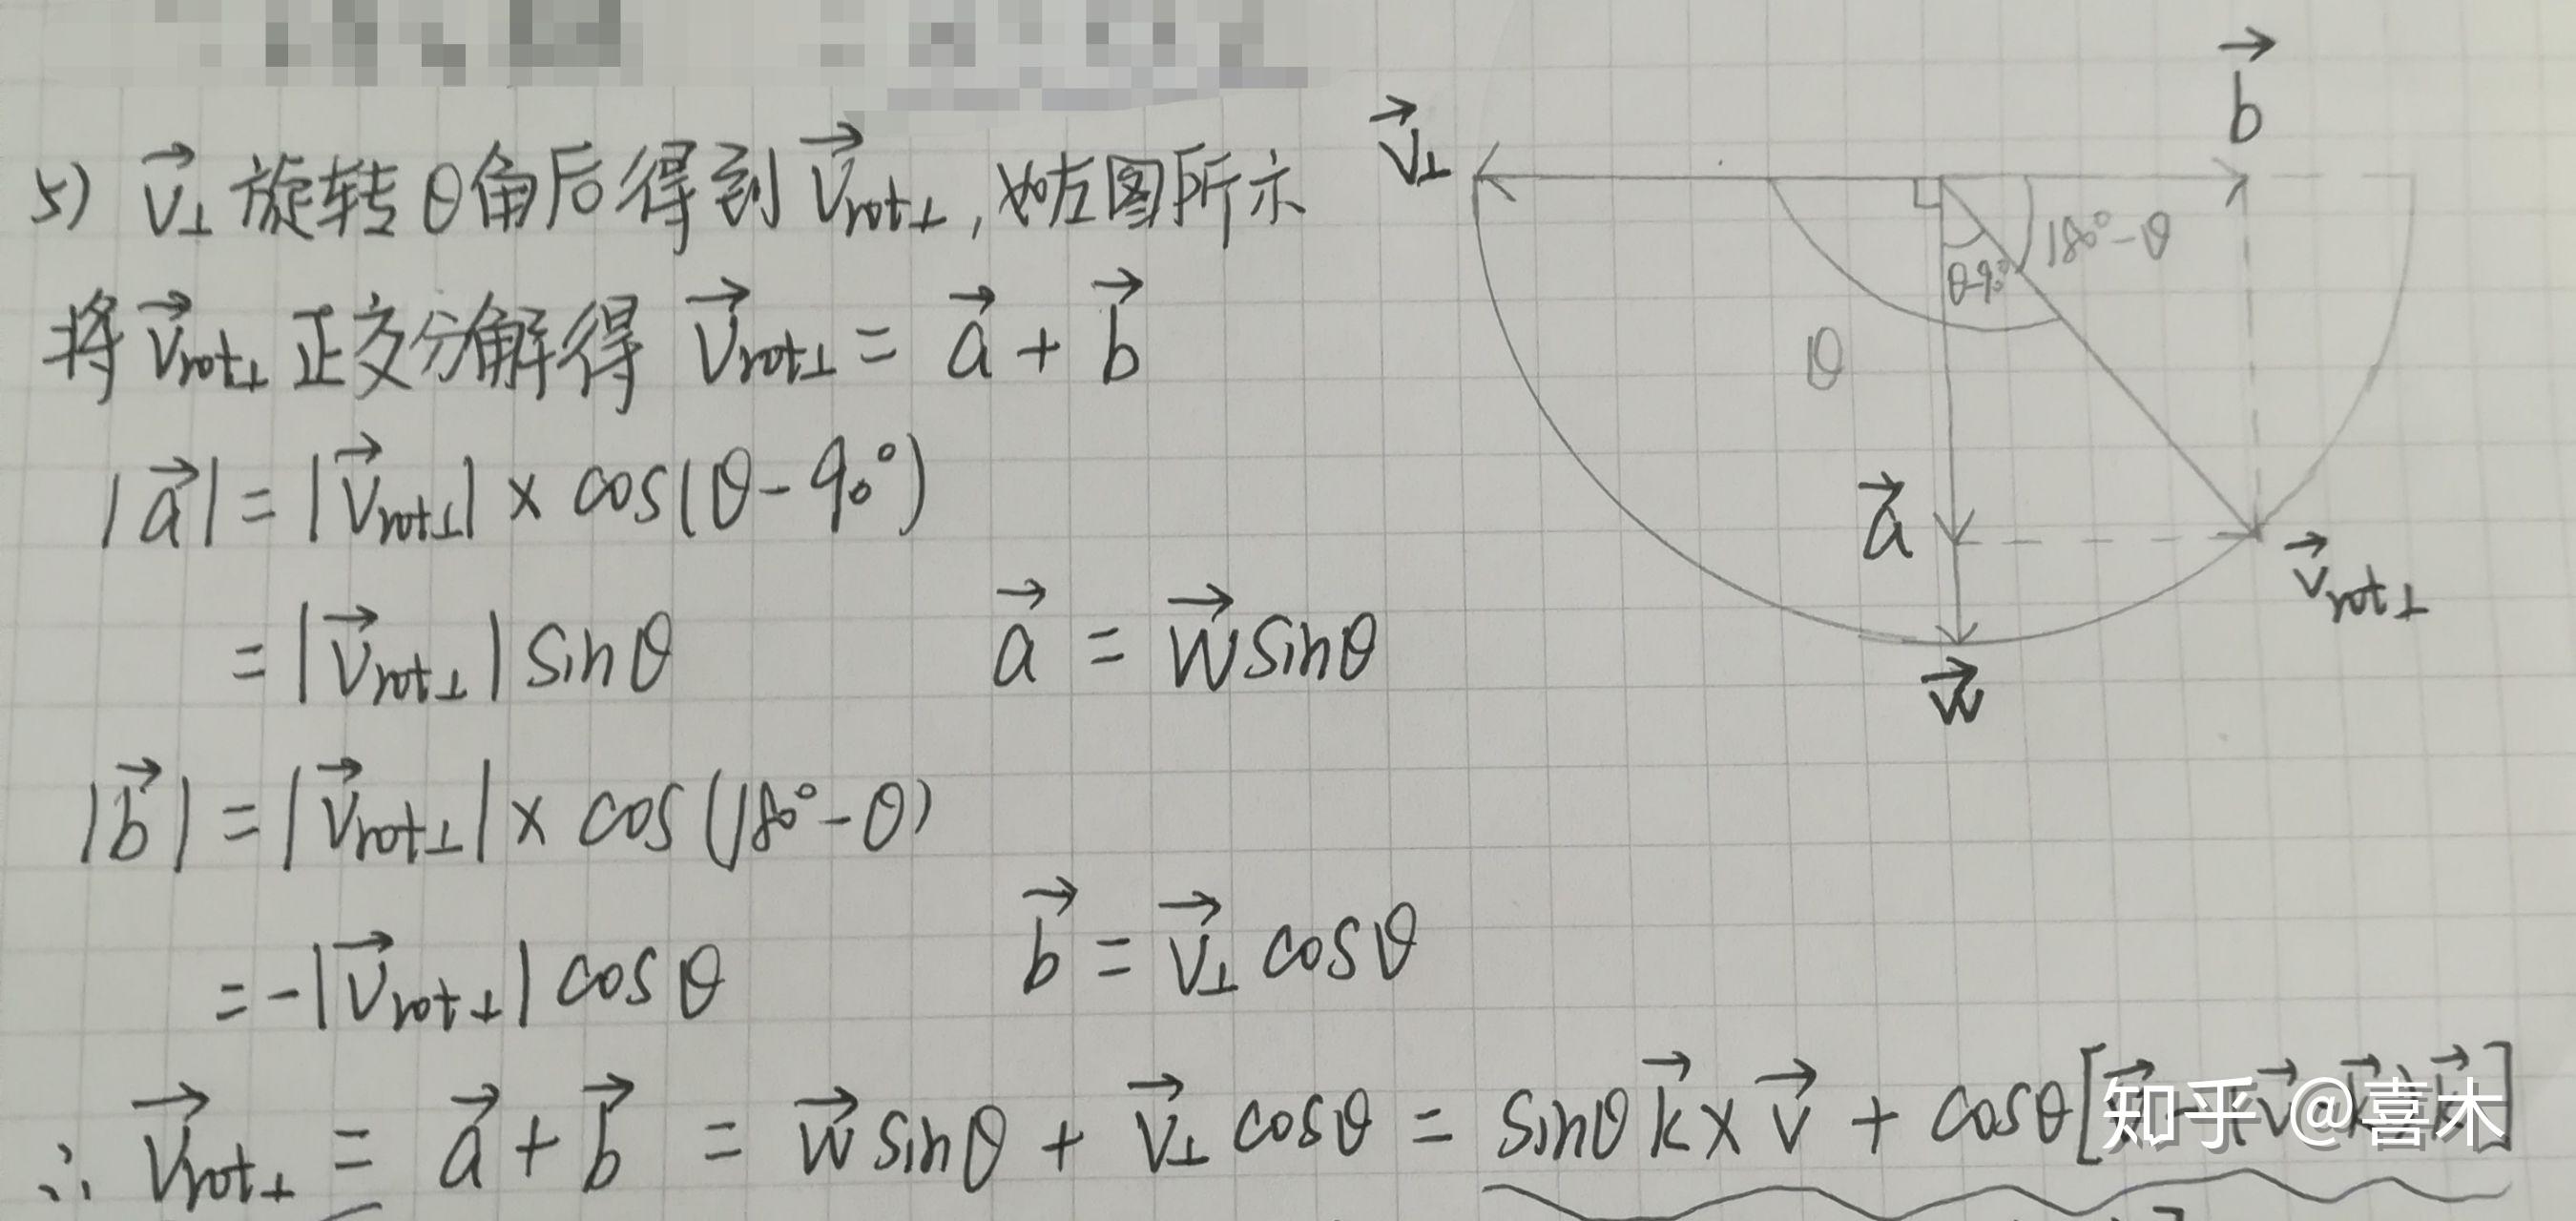 5) v⃗⊥旋转θ角后得到v⃗rot⊥,如左图所示
将v⃗rot⊥正交分解得 v⃗rot⊥ = a⃗ + b⃗
|a⃗| = |v⃗rot⊥| × cos(θ-90°)
= |v⃗rot⊥| sinθ
a⃗ = w⃗ sinθ
|b⃗| = |v⃗rot⊥| × cos(180°-θ)
= -|v⃗rot⊥| cosθ
b⃗ = v⃗⊥ cosθ
∴ v⃗rot⊥ = a⃗ + b⃗ = w⃗ sinθ + v⃗⊥ cosθ = sinθ k⃗ × v⃗ + cosθ[
v⃗⊥
b⃗
180°-θ
θ-90°
θ
a⃗
v⃗rot⊥
w⃗
知乎 @喜木